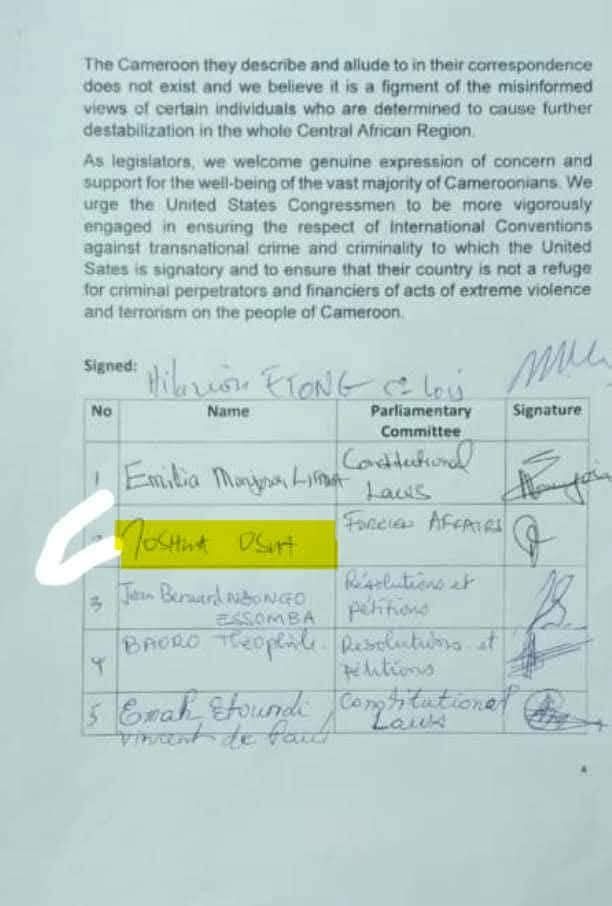 The Cameroon they describe and allude to in their correspondence
does not exist and we believe it is a figment of the misinformed
views of certain individuals who are determined to cause further
destabilization in the whole Central African Region.
As legislators, we welcome genuine expression of concern and
support for the well-being of the vast majority of Cameroonians. We
urge the United States Congressmen to be more vigorously
engaged in ensuring the respect of International Conventions
against transnational crime and criminality to which the United
Sates is signatory and to ensure that their country is not a refuge
for criminal perpetrators and financiers of acts of extreme violence
and terrorism on the people of Cameroon.
Signed: Hilarion ETONG
No Name Parliamentary Committee Signature
1 Emilia Constitutional Laws
JOSHUA OSIH FOREIGN AFFAIRS
3 Jean Bernard NDONGO ESSOMBA Résolutions et pétitions
4 BAORO Théophile Resolutions et pétitions
5 Emah Etoundi Vincent de Paul Constitutional Laws